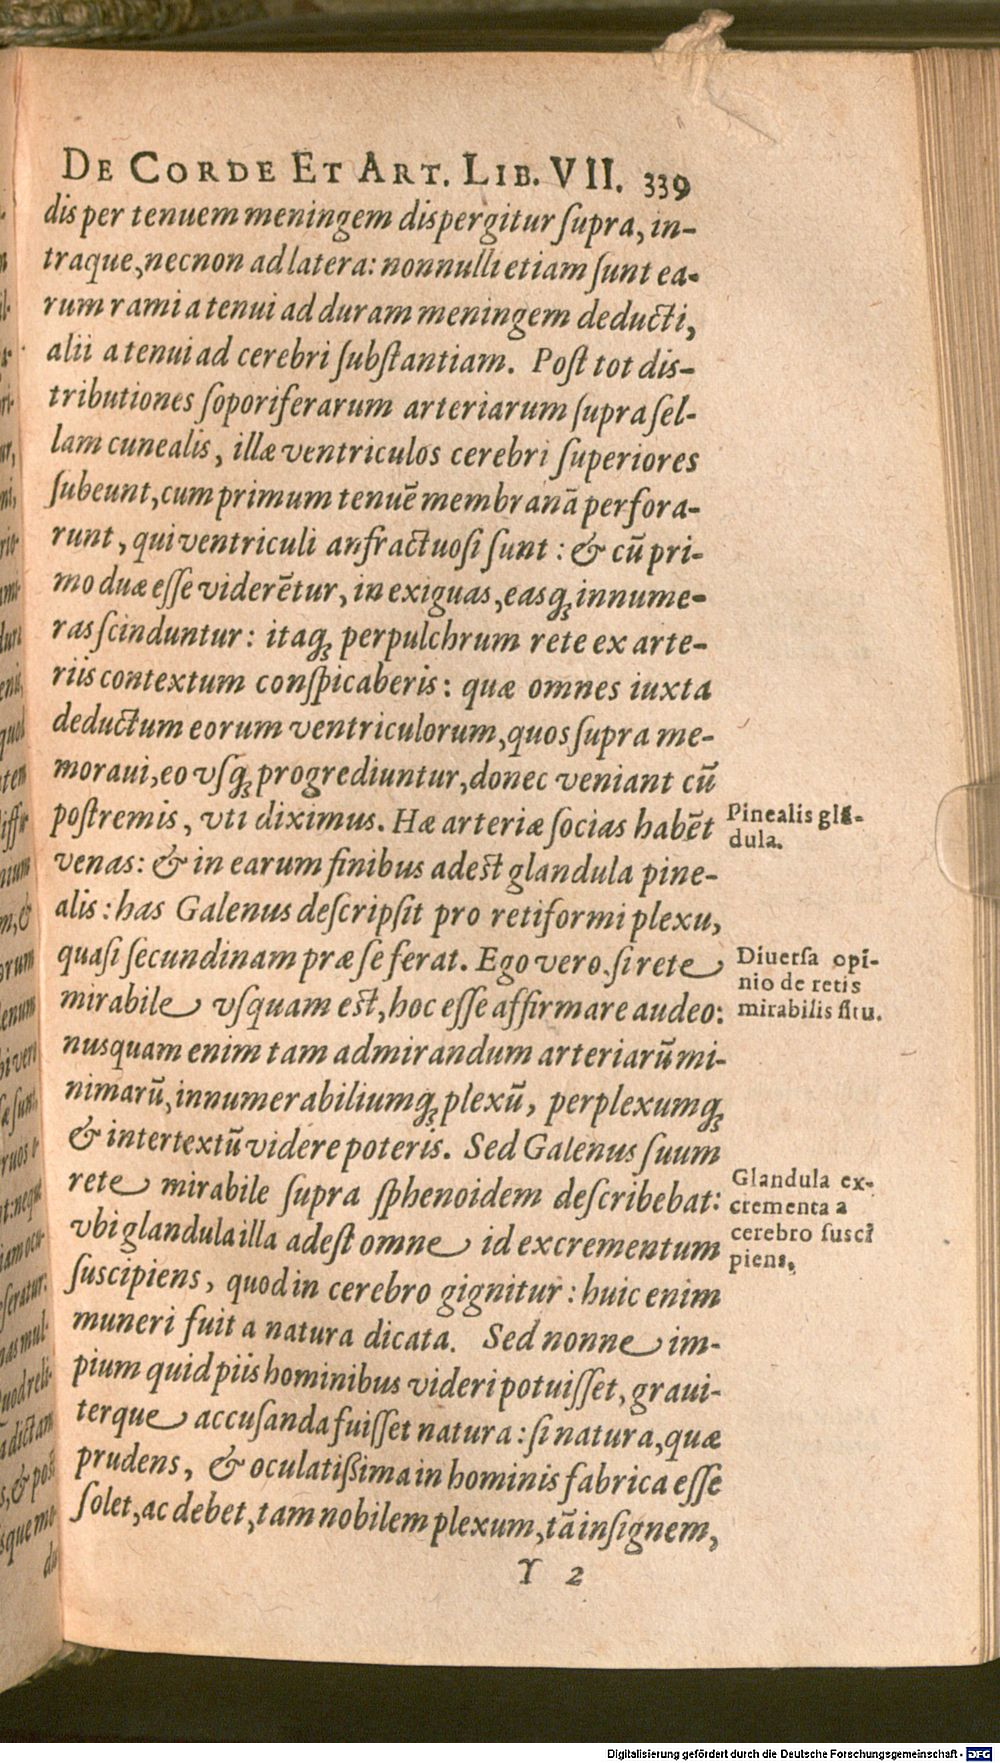 DE CORDE ET ART. LIB. VII. 339
dis per tenuem meningem dispergitur ſupra, in-
traque, necnon ad latera: nonnulli etiam ſunt ea-
rum rami a tenui ad duram meningem deducti,
alii a tenui ad cerebri ſubſtantiam. Poſt tot dis-
tributiones ſoporiferarum arteriarum ſupra ſel-
lam cunealis, illæ ventriculos cerebri ſuperiores
ſubeunt, cum primum tenuē membranā perfora-
runt, qui ventriculi anfractuoſi ſunt: & cū pri-
mo duæ eſſe viderētur, in exiguas, easq; innume-
ras ſcinduntur: itaq; perpulchrum rete ex arte-
riis contextum conſpicaberis: quæ omnes iuxta
deductum eorum ventriculorum, quos ſupra me-
moraui, eo vſq; progrediuntur, donec veniant cū
poſtremis, vti diximus. Hæ arteriæ ſocias habēt
venas: & in earum finibus adeſt glandula pine-
alis: has Galenus deſcripſit pro retiformi plexu,
quaſi ſecundinam præ ſe ferat. Ego vero. ſi rete
mirabile vſquam eſt, hoc eſſe affirmare audeo:
nusquam enim tam admirandum arteriarū mi-
nimarū, innumerabiliumq; plexū, perplexumq;
& intertextū videre poteris. Sed Galenus ſuum
rete mirabile ſupra ſphenoidem deſcribebat:
vbi glandula illa adeſt omne id excrementum
ſuscipiens, quod in cerebro gignitur: huic enim
muneri fuit a natura dicata. Sed nonne im-
pium quid piis hominibus videri potuiſſet, graui-
terque accuſanda fuiſſet natura: ſi natura, quæ
prudens, & oculatißima in hominis fabrica eſſe
ſolet, ac debet, tam nobilem plexum, tā inſignem,
Y 2
Pinealis glā-
dula.
Diuerſa opi-
nio de retis
mirabilis ſitu.
Glandula ex-
crementa a
cerebro ſusci
piens.
Digitalisierung gefördert durch die Deutsche Forschungsgemeinschaft - DFG